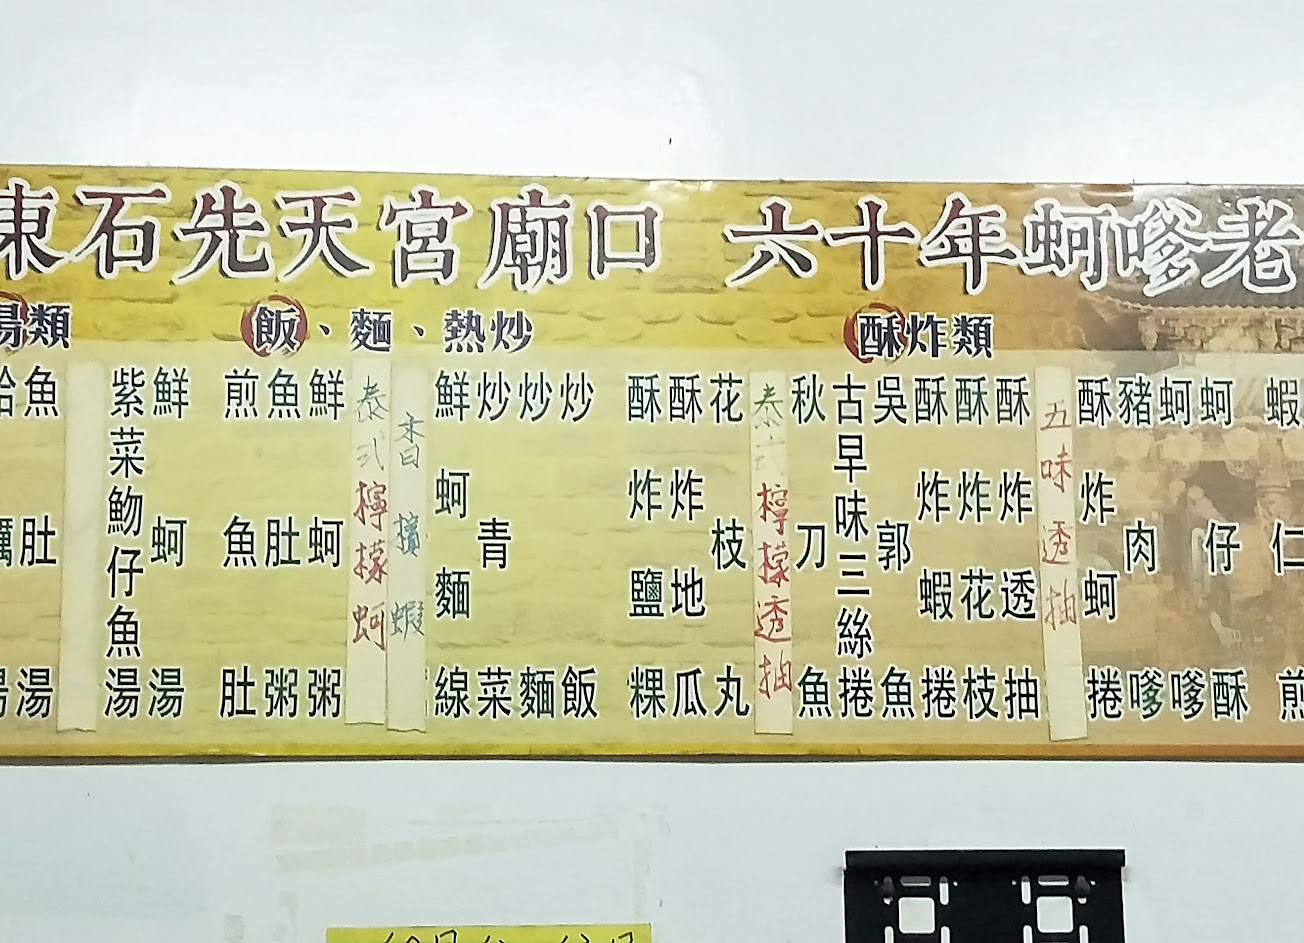 東石先天宮廟口 六十年蚵嗲老
酥炸類
蝦仁煎
蚵仔酥
蚵嗲
豬肉嗲
酥炸蚵捲
五味透抽
酥炸透抽
酥炸花枝
酥炸蝦捲
吳郭魚
古早味三絲捲
秋刀魚
泰式檸檬透抽
花枝丸
酥炸地瓜
酥炸鹽粿
飯、麵、熱炒
炒飯
炒麵
炒青菜
鮮蚵麵線
香檳蝦
泰式檸檬蚵
鮮蚵粥
魚肚粥
煎魚肚
湯類
鮮蚵湯
紫菜魩仔魚湯
魚肚湯
蛤蠣湯